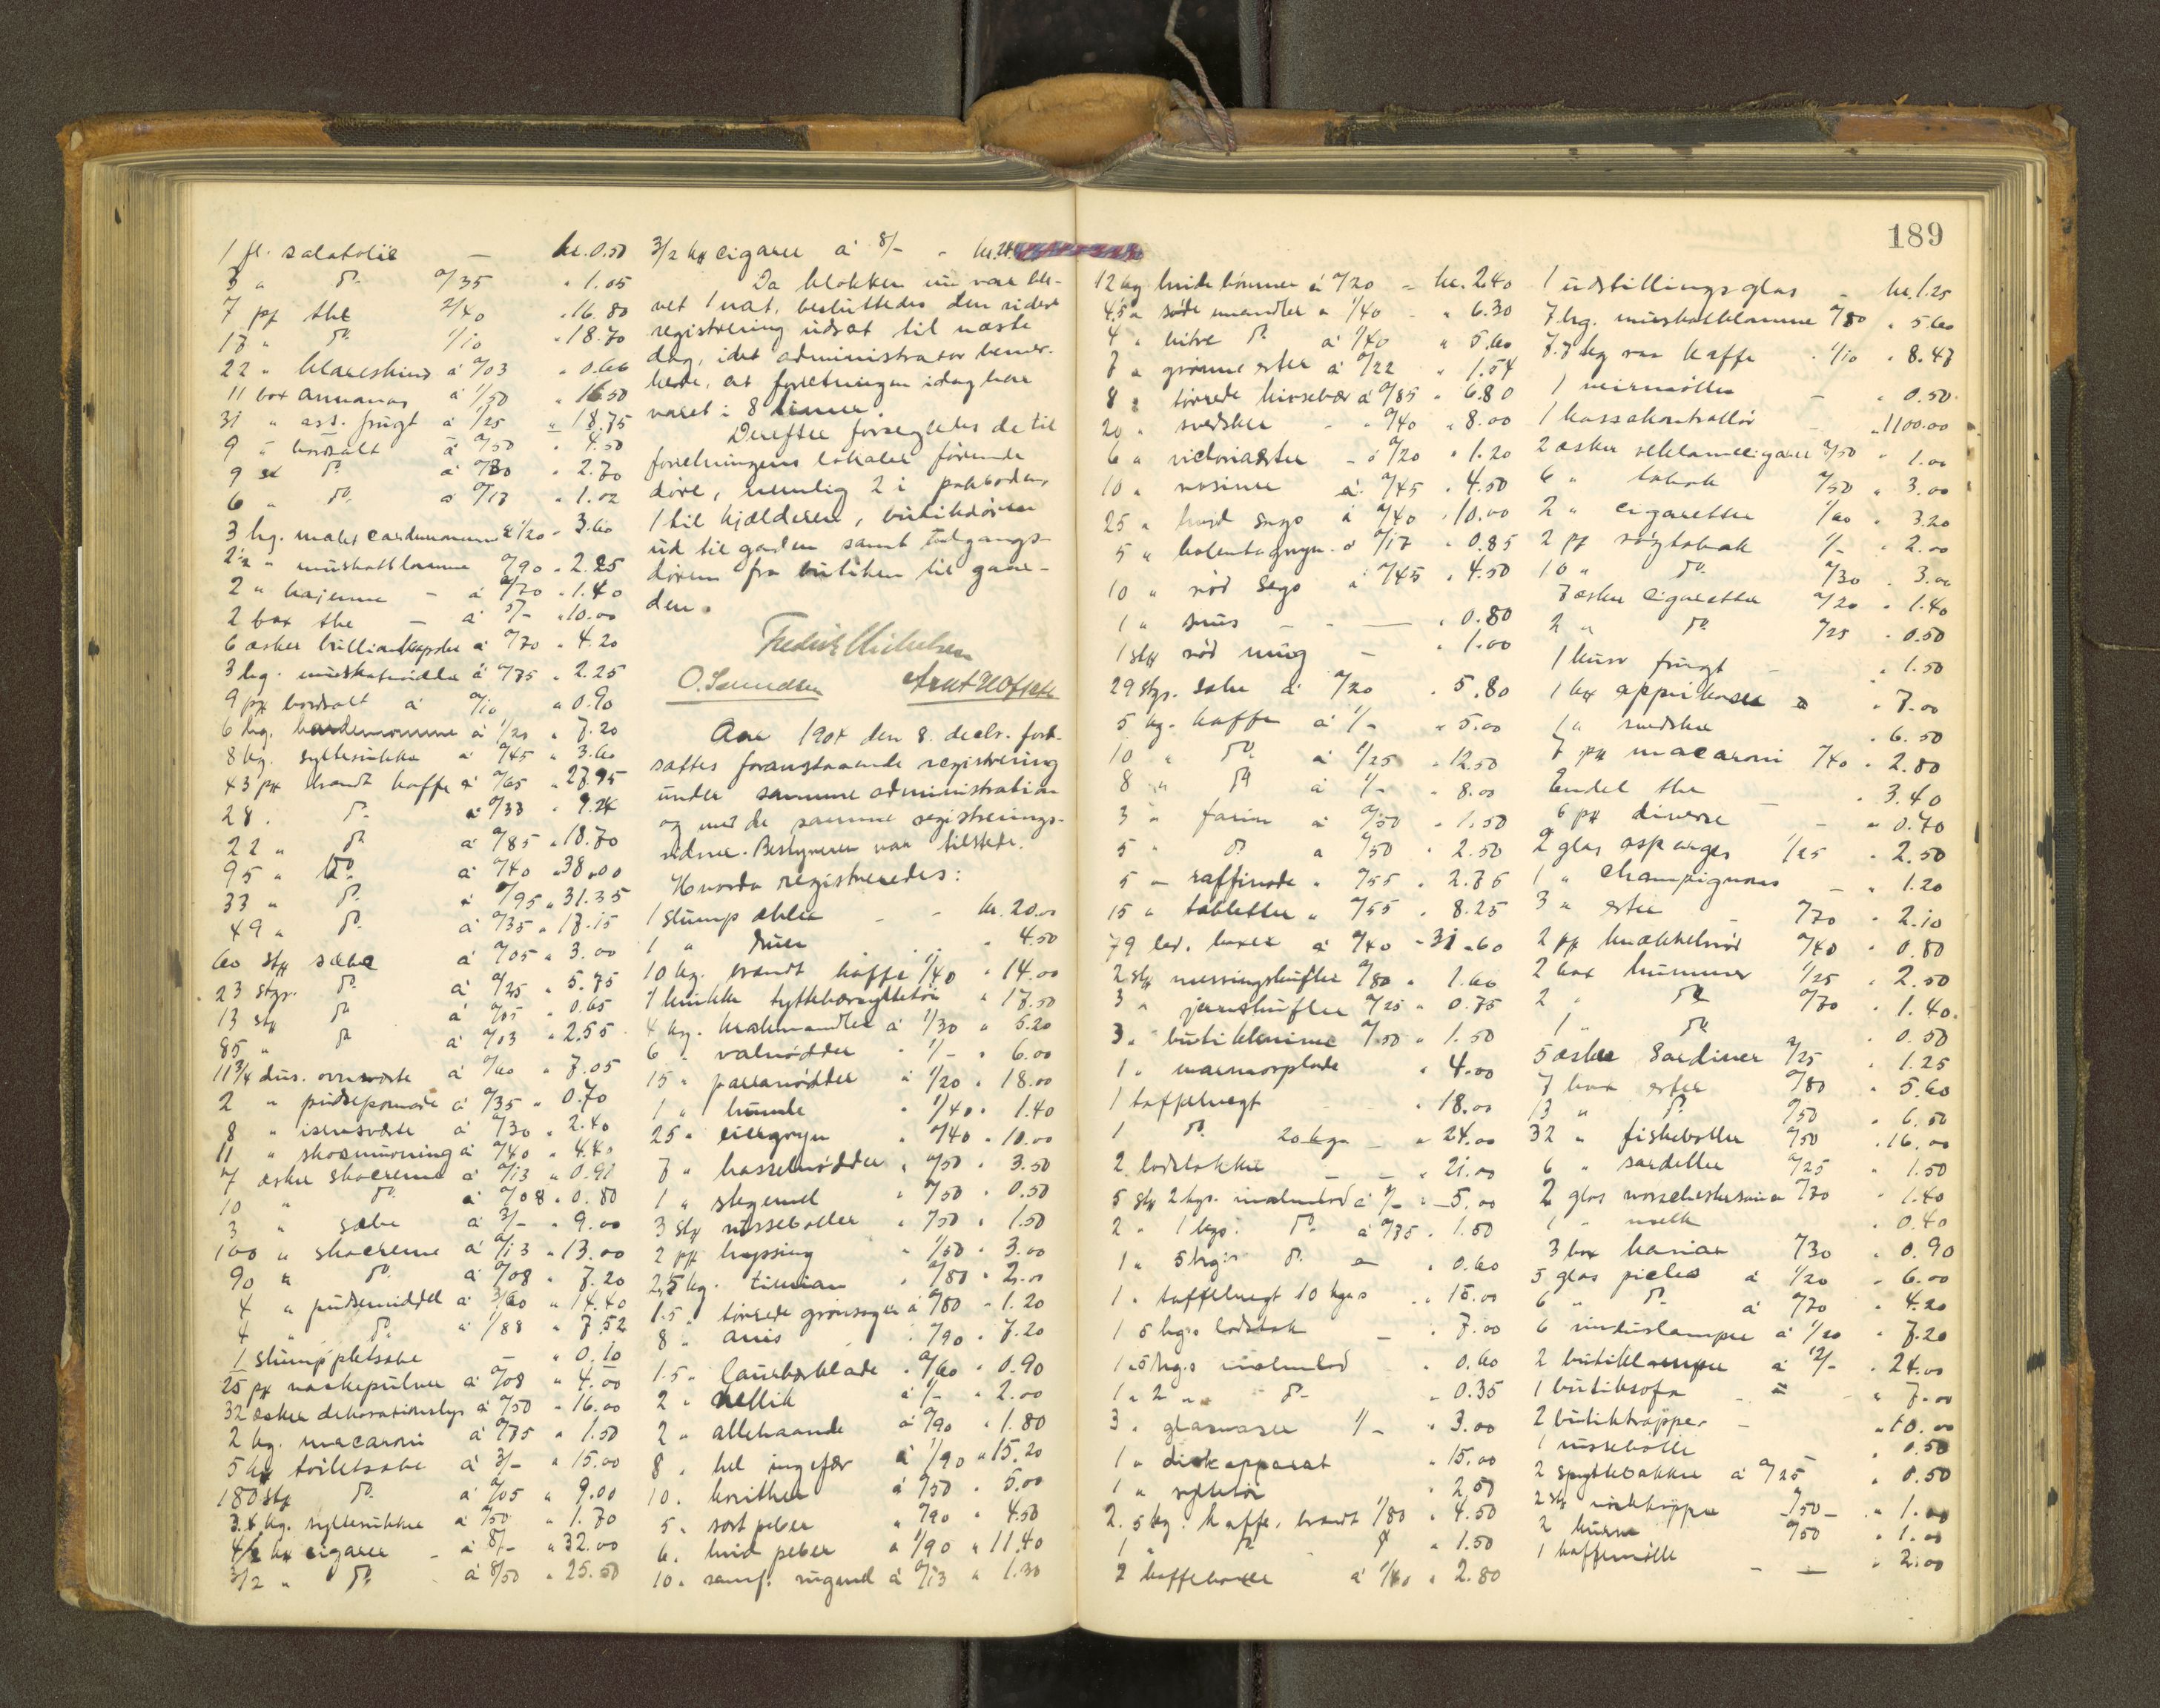 1 fl. salatolie — kr. 0.50
3 " do. 0/35 " 1.05
7 pk the 2/40 " 16.80
17 " do. 1/10 " 18.70
22 " klareskind à 0/03 " 0.66
11 box annanas à 1/50 " 16.50
31 " ass. frugt à 1/25 " 18.75
9 " bordsalt à 0/50 " 4.50
9 " do. à 0/30 " 2.70
6 " do. à 0/17 " 1.02
3 hg. malet cardemomme à 1/20 " 3.60
2½ " muskatblomme 0/90 " 2.25
2 " kajenne — à 0/70 " 1.40
2 box the — à 5/- " 10.00
6 æsker brilliantkapsler à 0/70 " 4.20
3 hg. muskatnødder à 0/75 " 2.25
9 pk bordsalt à 0/10 " 0.90
6 hg. kardemomme à 1/20 " 7.20
8 kg. syltesukker à 0/45 " 3.60
43 pk brændt kaffe à 0/65 " 27.95
28 " do. à 0/33 " 9.24
22 " do. à 0/85 " 18.70
95 " do. à 0/40 " 38.00
33 " do. à 0/95 " 31.35
49 " do. à 0/35 " 17.15
60 stk sæbe à 0/05 " 3.00
23 stgr. do. à 0/25 " 5.75
13 stk do. à 0/05 " 0.65
85 " do. à 0/03 " 2.55
11¾ dus. ovnsværte à 0/60 " 7.05
2 " pudsepomade à 0/35 " 0.70
8 " isensværte à 0/30 " 2.40
11 " skosmurning à 0/40 " 4.40
7 æsker skocreme à 0/13 " 0.91
10 " do. à 0/08 " 0.80
3 " sæbe à 3/- " 9.00
100 " skocreme à 0/13 " 13.00
90 " do. à 0/08 " 7.20
4 " pudsemiddel à 3/60 " 14.40
4 " do. à 1/88 " 7.52
1 stump pletsæbe — " 0.10
25 pk vaskepulver à 0/08 " 4.00
32 æsker dekorationslys à 0/50 " 16.00
2 kg. macaroni à 0/75 " 1.50
5 kg toiletsæbe à 3/- " 15.00
180 stk do. à 0/05 " 9.00
3.4 kg. syltesukker à 0/50 " 1.70
4/2 kg cigarer — à 8/- " 32.00
3/2 " do. à 8/50 " 25.50
3/2 kg cigarer à 8/- " kr. 24
Da klokken nu var ble-
vet 1 nat, besluttedes den videre
registrering udsat til næste
dag, idet administrator bemer-
kede, at forretningen idag har
varet i 8 timer.
Derefter forsegledes de til
forretningens lokaler førende
døre, nemlig 2 i pakboden,
1 til kjælderen, butikdøren
ud til gaden samt udgangs-
døren fra butiken til gaar-
den.
Fredrik Michelsen
O. Svendsen
Aar 1904 den 8. decbr. fort-
sattes foranstaaende registrering
under samme administration
og med de samme registrerings-
vidner. Bestyreren var tilstede.
Hvorda registreredes:
1 slump æbler - - kr. 20.00
1 " druer - - " 4.50
10 kg. brændt kaffe 1/40 " 14.00
1 krukke tyttebærsyltetøi " 17.50
4 kg. krakmandler à 1/30 " 5.20
6 " valnødder " 1/- " 6.00
15 " paranødder " 1/20 " 18.00
1 " humle " 1/40 " 1.40
25 " risengryn " 0/40 " 10.00
7 " hasselnødder " 0/50 " 3.50
1 " " 0/50 " 0.50
3 stk musseboller " 0/50 " 1.50
2 pk hyssing " 1/50 " 3.00
2,5 kg. timian " 0/80 " 2.00
1.5 " tørrede grønsager à 0/80 " 1.20
8 " anis " 0/90 " 7.20
1.5 " laurbærblade " 0/60 " 0.90
2 " nellik à 1/- " 2.00
2 " allehaande à 0/90 " 1.80
8 " hel ingefær à 1/90 " 15.20
10 " korinther à 0/50 " 5.00
5 " sort peber " 0/90 " 4.50
6 " hvid peber à 1/90 " 11.40
10 " samf. rugmel à 0/13 " 1.30
189
12 kg hvide bønner à 0/20 - kr. 2.40
4.5 " søde mandler " 1/40 - " 6.30
4 " bitre do. à 1/40 " 5.60
7 " grønne erter à 0/22 " 1.54
8 " tørrede kirsebær à 0/85 " 6.80
20 " svedsker " 0/40 " 8.00
6 " victoriaerter - à 0/20 " 1.20
10 " rosiner à 0/45 " 4.50
25 " hvid sago à 0/40 " 10.00
5 " boghvedegryn à 0/17 " 0.85
10 " rød sago à 0/45 " 4.50
1 " snus - - — " 0.80
1 stk rød mug — " 1.00
29 stgr. sæbe à 0/20 " 5.80
5 kg. kaffe à 1/- " 5.00
10 " do. à 1/25 " 12.50
8 " do. à 1/- " 8.00
3 " farin à 0/50 " 1.50
5 " do. à 0/50 " 2.50
5 " raffinade " 0/55 " 2.75
15 " tabletter " 0/55 " 8.25
79 led. kasser à 0/40 " 31.60
2 stk messingskufler 0/80 " 1.60
3 " jernskufler 0/25 " 0.75
3 " butikkniver 0/50 " 1.50
1 " marmorplade " 4.00
1 taffelvegt " 18.00
1 do. 20 kgs — " 24.00
2 lodstokke — — " 21.00
5 stk 2 kgs. malmlod à 1/- " 5.00
2 " 1 kgs. do. à 0/75 " 1.50
1 " 5 hgs. do. — " 0.60
1 " taffelvegt 10 kgs " 15.00
1 5 kgs lodstok — " 7.00
1 " 5 hgs malmlod " 0.60
1 " 2 " " do. " 0.35
3 " glasvaser 1/- " 3.00
1 " diskapparat " 15.00
1 " " 2.50
2.5 kg. kaffe, brændt 1/80 " 4.50
1 " do. " 1.50
2 kaffebokser à 1/40 " 2.80
1 udstillingsglas - kr. 1.25
7 hg. muskatblomme 0/80 " 5.60
7.7 kg raa kaffe " 1/10 " 8.47
1 veirmølle — " 0.50
1 kassakontrollør " 1100.00
2 æsker reklamecigarer 0/50 " 1.00
6 " tobak 0/50 " 3.00
2 " cigaretter 1/60 " 3.20
2 pk røgtobak 1/- " 2.00
10 " do. 0/30 " 3.00
7 æsker cigaretter 0/20 " 1.40
2 " do. 0/25 " 0.50
1 kurv frugt — " 1.50
1 kg apprikoser " 7.00
1 " svedsker " 6.50
7 pk macaroni 0/40 " 2.80
Endel the — " 3.40
6 pk diverse — " 0.70
2 glas asparges 1/25 " 2.50
1 " Champignons — " 1.20
3 " erter 0/70 " 2.10
2 pk knækkebrød 0/40 " 0.80
2 box hummer 1/25 " 2.50
2 " do. 0/70 " 1.40
1 " do. " 0.50
5 æsker Sardiner 0/25 " 1.25
7 box erter 0/80 " 5.60
13 " do. 0/50 " 6.50
32 " fiskeboller 0/50 " 16.00
6 " sardeller 0/25 " 1.50
2 glas worschestersauce 0/70 " 1.40
1 " melk " 0.40
3 box kaviar 0/30 " 0.90
5 glas picles à 1/20 " 6.00
6 " do. à 0/70 " 4.20
6 vinduslamper à 1/20 " 7.20
2 butiklamper à 12/- " 24.00
1 butiksofa - - " 7.00
2 butiktrapper — " 10.00
1 mussebolle " 0.50
2 spyttebakker à 0/25 " 0.50
2 stk 0/50 - " 1.00
2 kurve 0/50 " 1.00
1 kaffemølle - — " 2.00